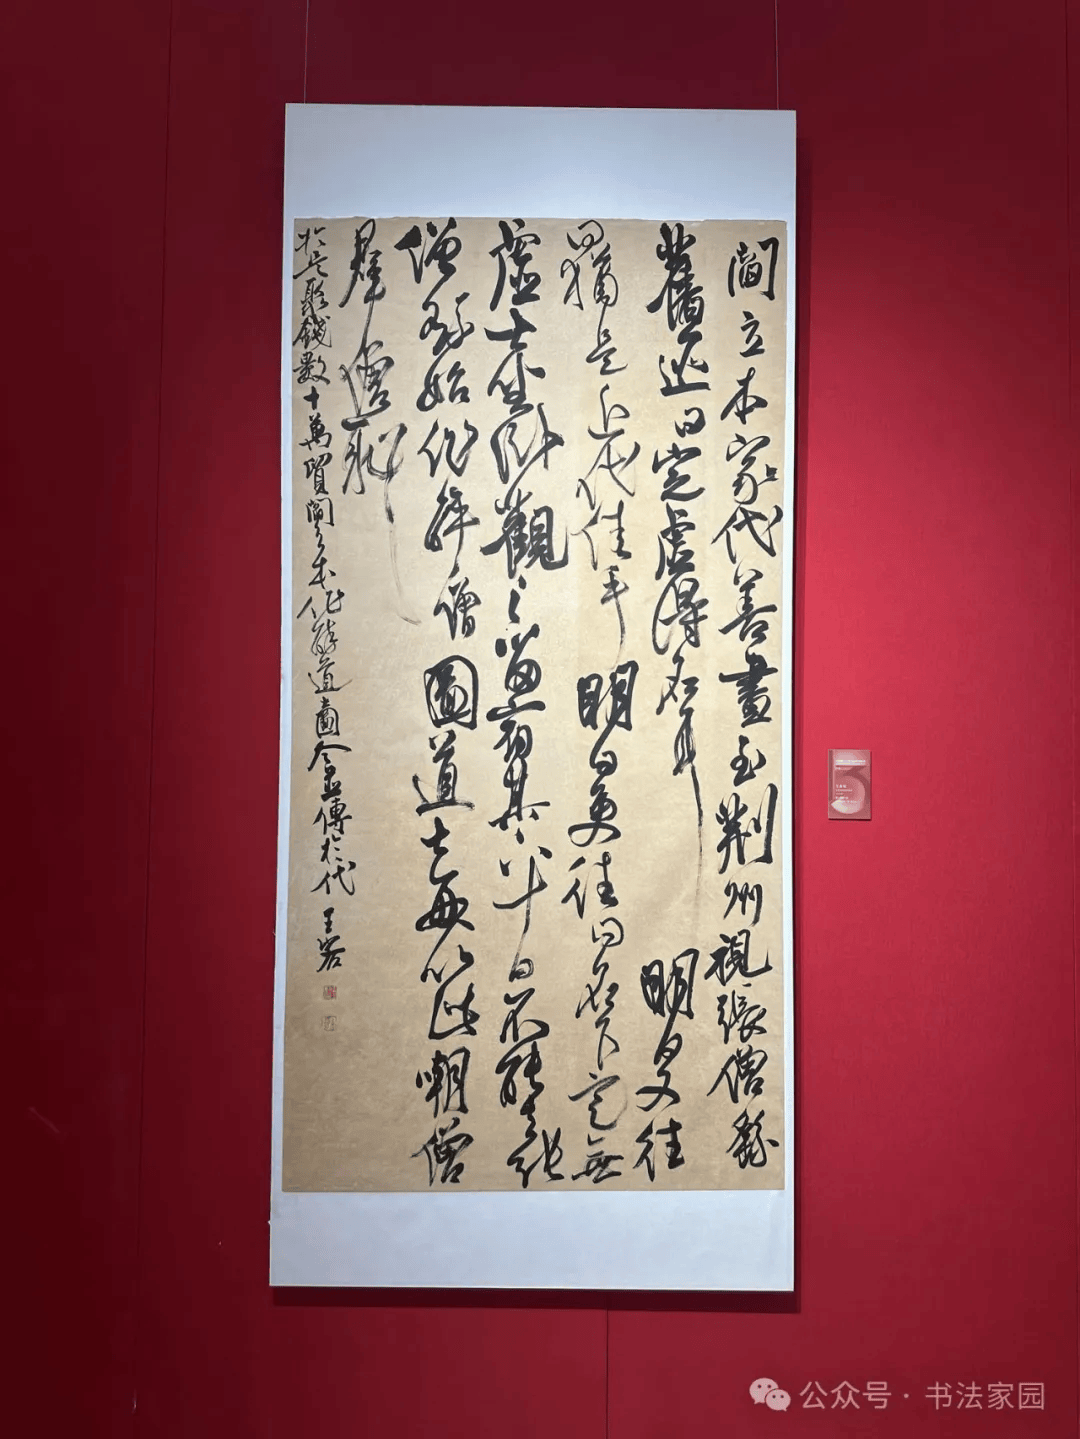 閻立本家代善畫至荆州視張僧繇
舊迹曰定虚得名耳明日又往
曰猶是近代佳手明日更往曰名下定無
虚士坐卧觀之留宿其下十日不能去張
僧繇始作醉僧圖道士每以此嘲僧
群僧耻
於是聚錢數十萬貿閻立本作醉道圖今並傳於代 王
公众号 · 书法家园